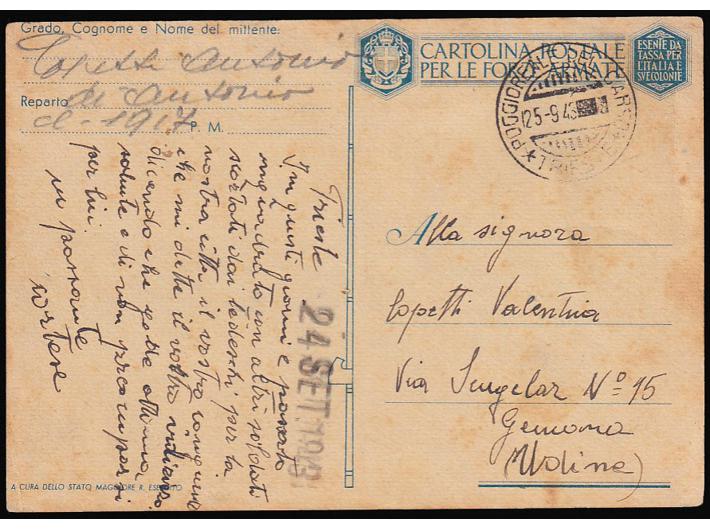 Grado, Cognome e Nome del mittente:
Copetti Antonio
Reparto di Antonio
cl-1917 P. M.
Trieste 24 SET 1943
In questi giorni è passato
inquadrato con altri soldati
scortati dai tedeschi per la
nostra città il vostro congiunto
che mi dette il vostro indirizzo
dicendo che gode ottima
salute e di non preoccuparsi
per lui.
un passante
cortese
A CURA DELLO STATO MAGGIORE R. ESERCITO
CARTOLINA POSTALE
PER LE FORZE ARMATE
ESENTE DA
TASSA PER
L'ITALIA E
SVE COLONIE
POGGIOREALE DEL CARSO
25-9 43
TRIESTE
Alla signora
Copetti Valentina
Via Singelar Nº 15
Gemona
(Udine)